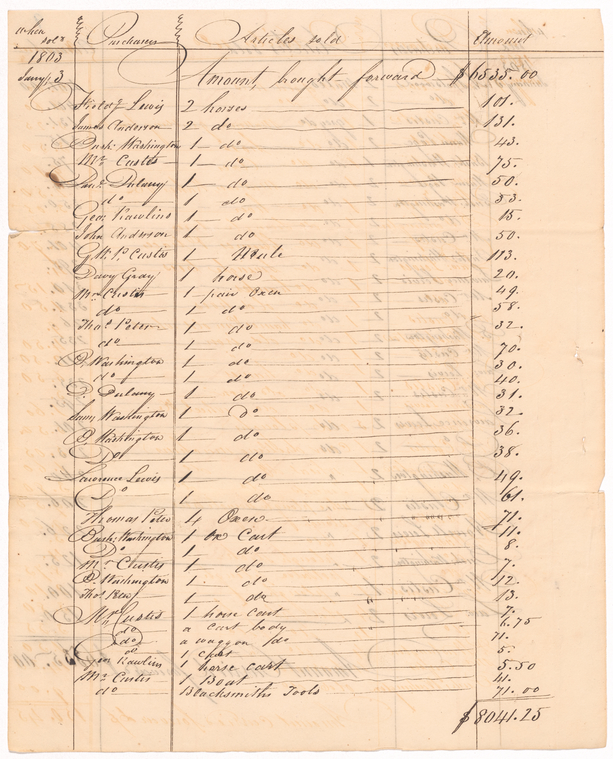 when sold Purchaser Articles sold Amount
1803
Jany 3 Amount bought forward $6535.00
Fieldg Lewis 2 horses 101.
James Anderson 2 do 131.
Bush: Washington 1 do 43.
Mr Custis 1 do 75.
Dulany 1 do 50.
do 1 do 53.
Geo Rawlins 1 do 15.
John Anderson 1 do 50.
G W P Custis 1 Mule 123.
Davy Gray 1 horse 20.
Mr Custis 1 pair Oxen 49.
do 1 do 58.
Thos Peter 1 do 32.
do 1 do 70.
B. Washington 1 do 30.
do 1 do 40.
B. Dulany 1 do 31.
Washington 1 Do 32.
B. Washington 1 do 36.
Do 1 do 38.
Lawrence Lewis 1 do 49.
Do 1 do 61.
Thomas Peter 4 Oxen 71.
Bush: Washington 1 Ox Cart 11.
Do 1 do 8.
Mr Custis 1 do 7.
B. Washington 1 do 12.
Thos Peter 1 do 13.
Mr Custis 1 horse cart 7.
do a cart body 6.75
do a waggon do 71.
do 1 cart 5.
Rawlins 1 horse cart 5.50
Mr Custis 1 Boat 41.
do Blacksmiths Tools 71.00
$8041.25